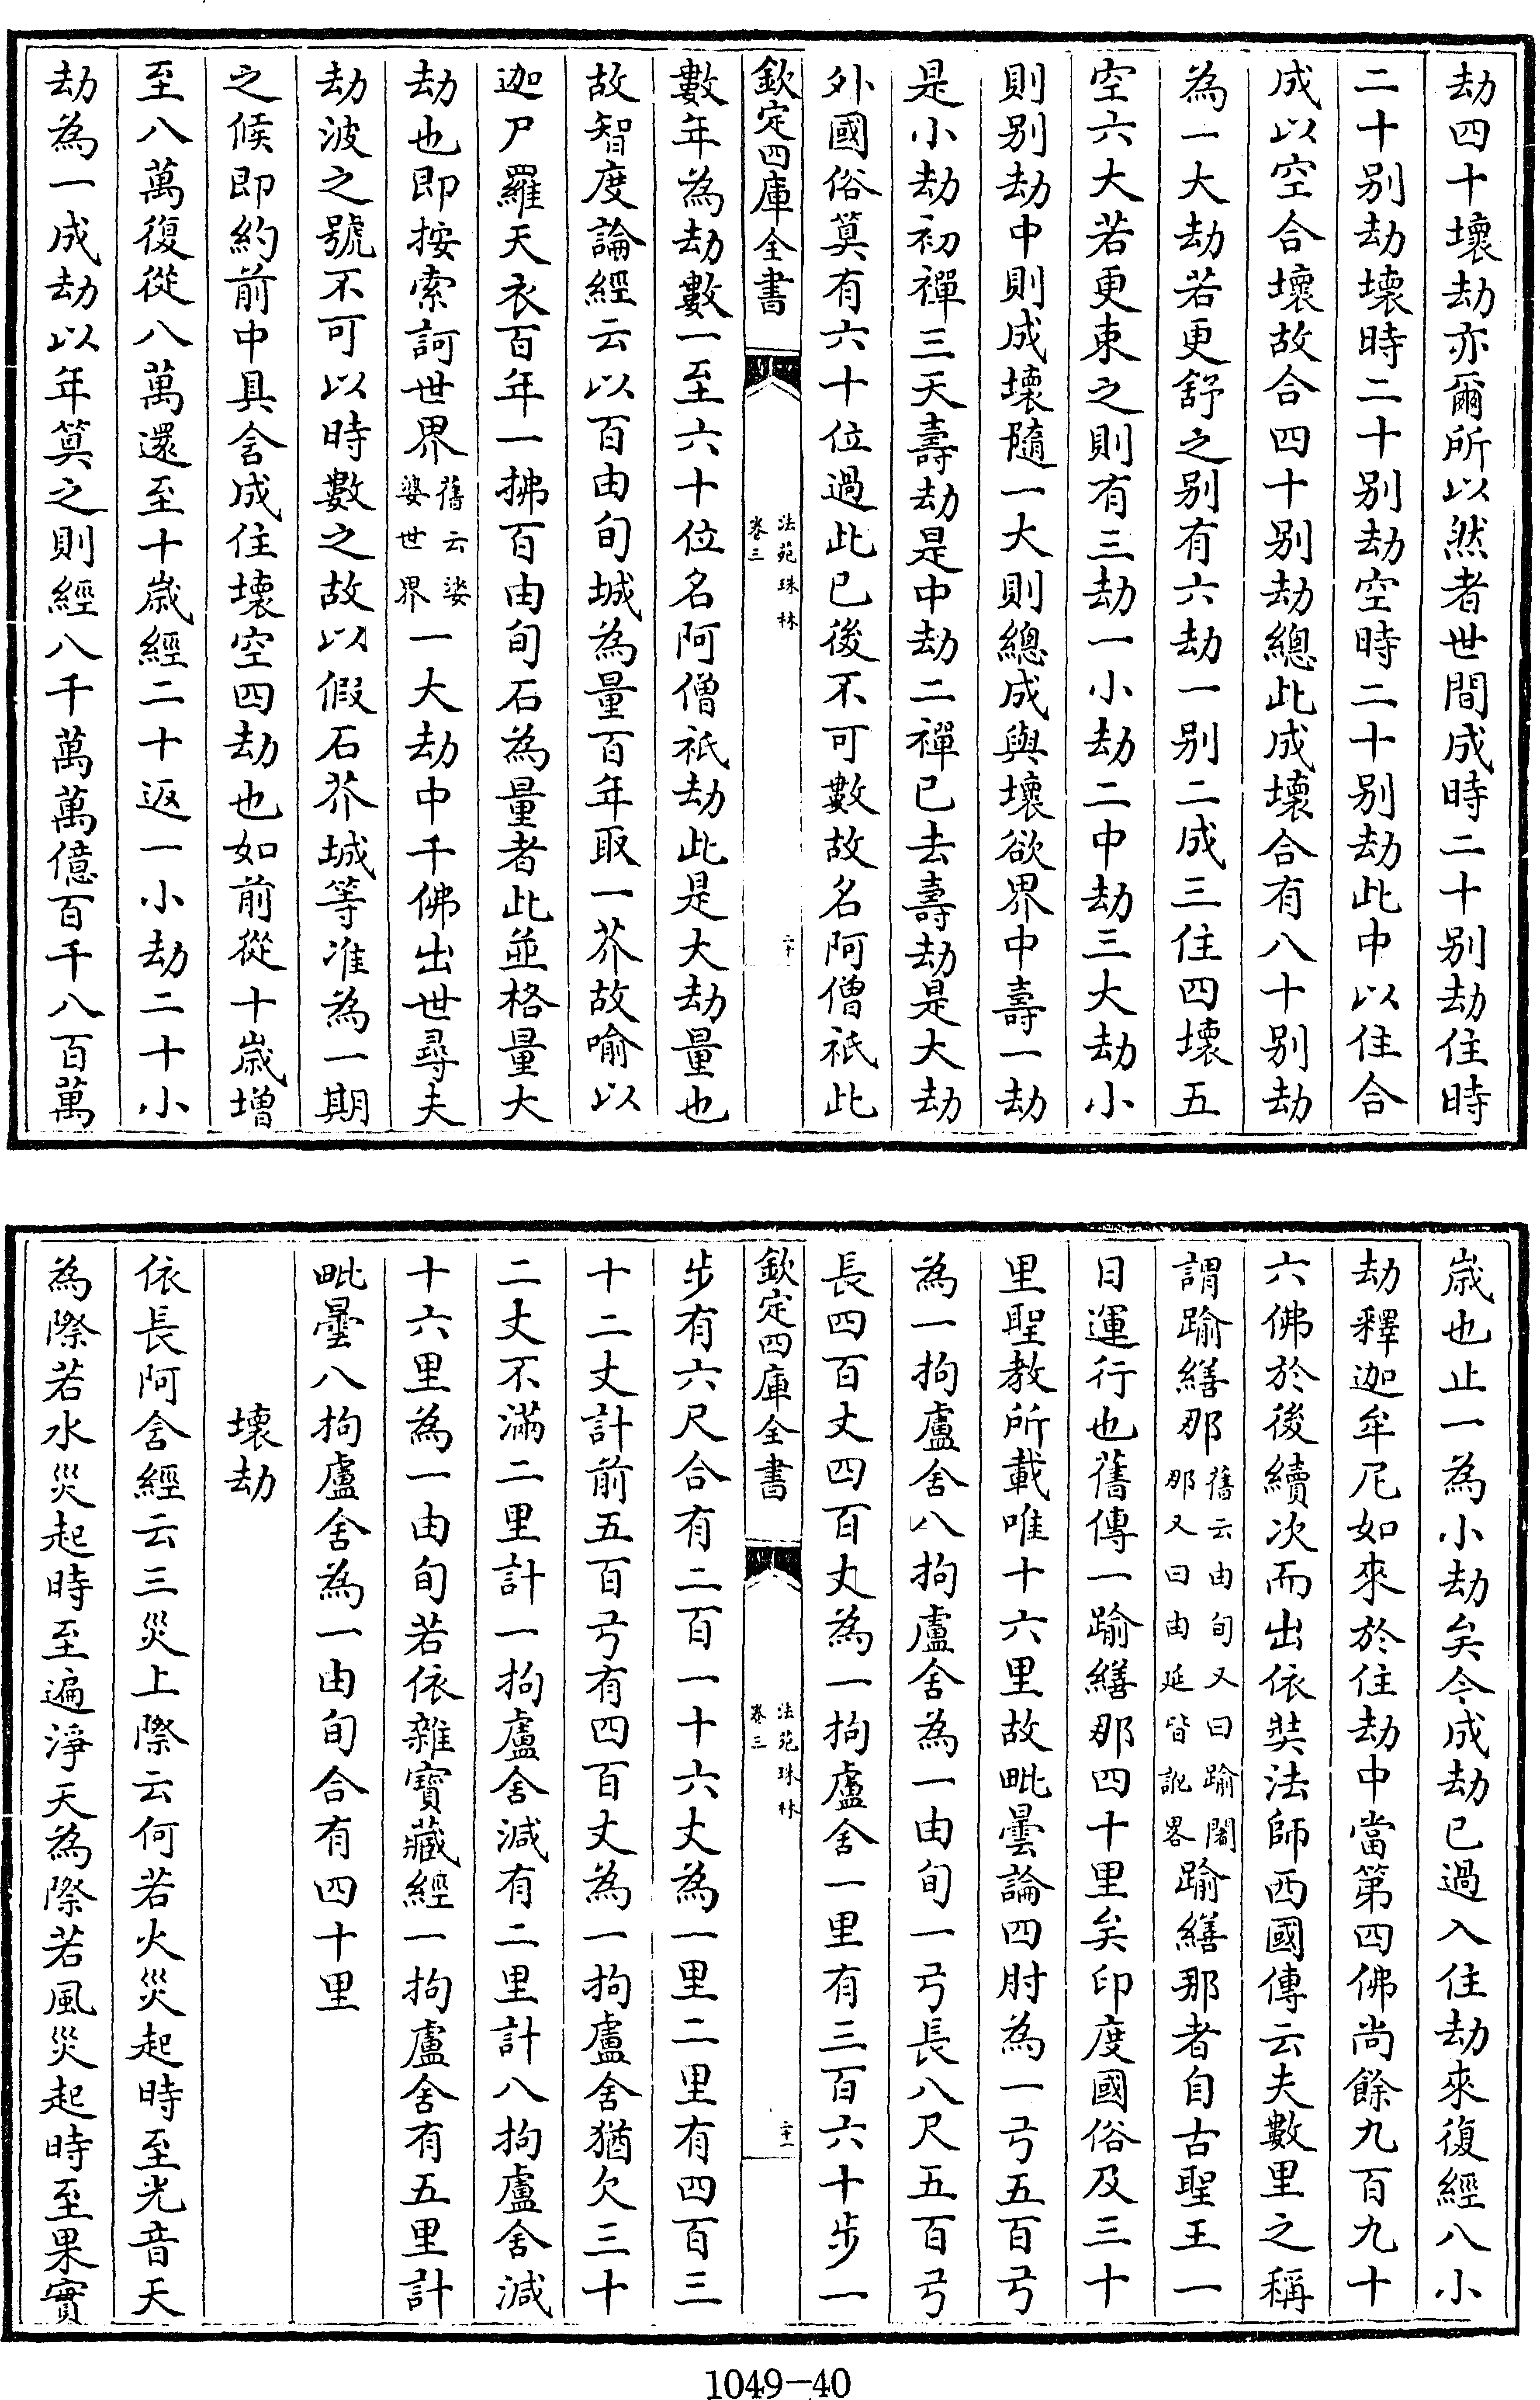 劫四十壞劫亦爾所以然者世間成時二十别劫住時
二十别劫壞時二十别劫空時二十别劫此中以住合
成以空合壞故合四十别劫總此成壞合有八十别劫
為一大劫若更舒之别有六劫一别二成三住四壞五
空六大若更束之則有三劫一小劫二中劫三大劫小
則别劫中則成壞隨一大則總成與壞欲界中壽一劫
是小劫初禪三天壽劫是中劫二禪已去壽劫是大劫
外國俗筭有六十位過此已後不可數故名阿僧祇此
欽定四庫全書
法苑珠林
卷三
二十
數年為劫數一至六十位名阿僧祇劫此是大劫量也
故智度論經云以百由旬城為量百年取一芥故喻以
迦尸羅天衣百年一拂百由旬石為量者此並格量大
劫也即按索訶世界舊云娑婆世界一大劫中千佛出世尋夫
劫波之號不可以時數之故以假石芥城等准為一期
之候即約前中具含成住壞空四劫也如前從十歲增
至八萬復從八萬還至十歲經二十返一小劫二十小
劫為一成劫以年筭之則經八千萬萬億百千八百萬
歲也止一為小劫矣今成劫已過入住劫來復經八小
劫釋迦牟尼如來於住劫中當第四佛尚餘九百九十
六佛於後續次而出依奘法師西國傳云夫數里之稱
謂踰繕那舊云由旬又曰踰闍那又曰由延皆訛畧踰繕那者自古聖王一
日運行也舊傳一踰繕那四十里矣印度國俗及三十
里聖教所載唯十六里故毗曇論四肘為一弓五百弓
為一拘盧舍八拘盧舍為一由旬一弓長八尺五百弓
長四百丈四百丈為一拘盧舍一里有三百六十步一
欽定四庫全書
法苑珠林
卷三
二十一
步有六尺合有二百一十六丈為一里二里有四百三
十二丈計前五百弓有四百丈為一拘盧舍猶欠三十
二丈不滿二里計一拘盧舍減有二里計八拘盧舍減
十六里為一由旬若依雜寶藏經一拘盧舍有五里計
毗曇八拘盧舍為一由旬合有四十里
壞劫
依長阿含經云三災上際云何若火災起時至光音天
為際若水災起時至遍淨天為際若風災起時至果實
1049-40